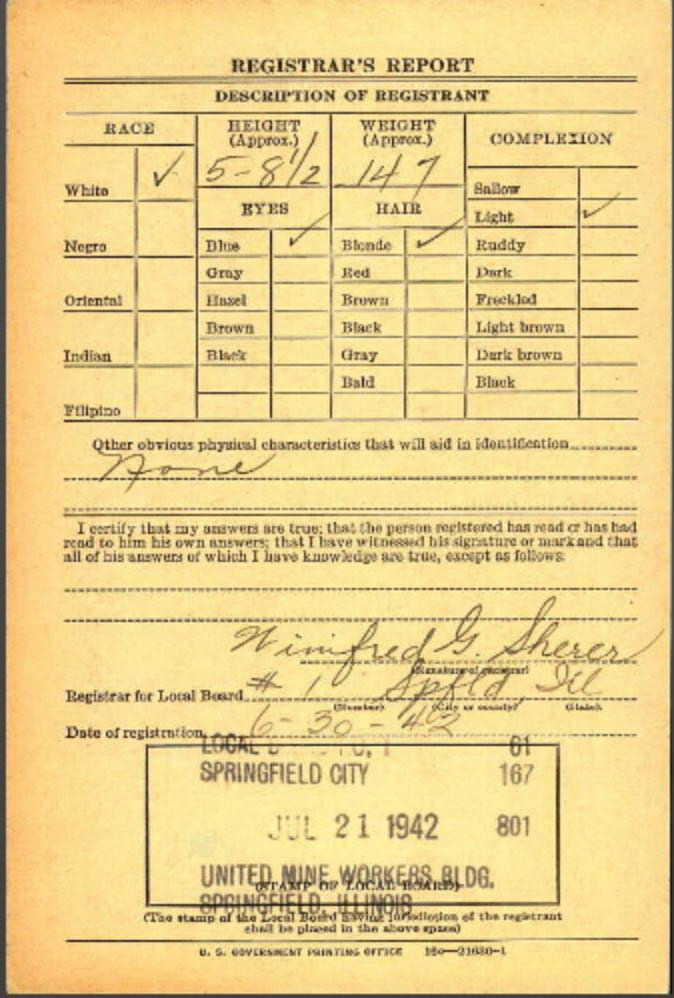 REGISTRAR'S REPORT
DESCRIPTION OF REGISTRANT
RACE
HEIGHT
(Approx.)
WEIGHT
(Approx.)
COMPLEXION
5-8 1/2
147
White ✓
Sallow
EYES
HAIR
Light ✓
Negro
Blue ✓
Blonde ✓
Ruddy
Gray
Red
Dark
Oriental
Hazel
Brown
Freckled
Brown
Black
Light brown
Indian
Black
Gray
Dark brown
Bald
Black
Filipino
Other obvious physical characteristics that will aid in identification
None
I certify that my answers are true; that the person registered has read or has had
read to him his own answers; that I have witnessed his signature or mark and that
all of his answers of which I have knowledge are true, except as follows:
Winifred G. Sherer
(Signature of registrar)
Registrar for Local Board # 1 Spfld, Ill
(Number) (City or county) (State)
Date of registration 6-30-42
LOCAL 1 61
SPRINGFIELD CITY 167
JUL 21 1942 801
UNITED MINE WORKERS BLDG.
(STAMP OF LOCAL BOARD)
SPRINGFIELD, ILLINOIS
(The stamp of the Local Board having jurisdiction of the registrant
shall be placed in the above space)
U. S. GOVERNMENT PRINTING OFFICE 16—21630-1